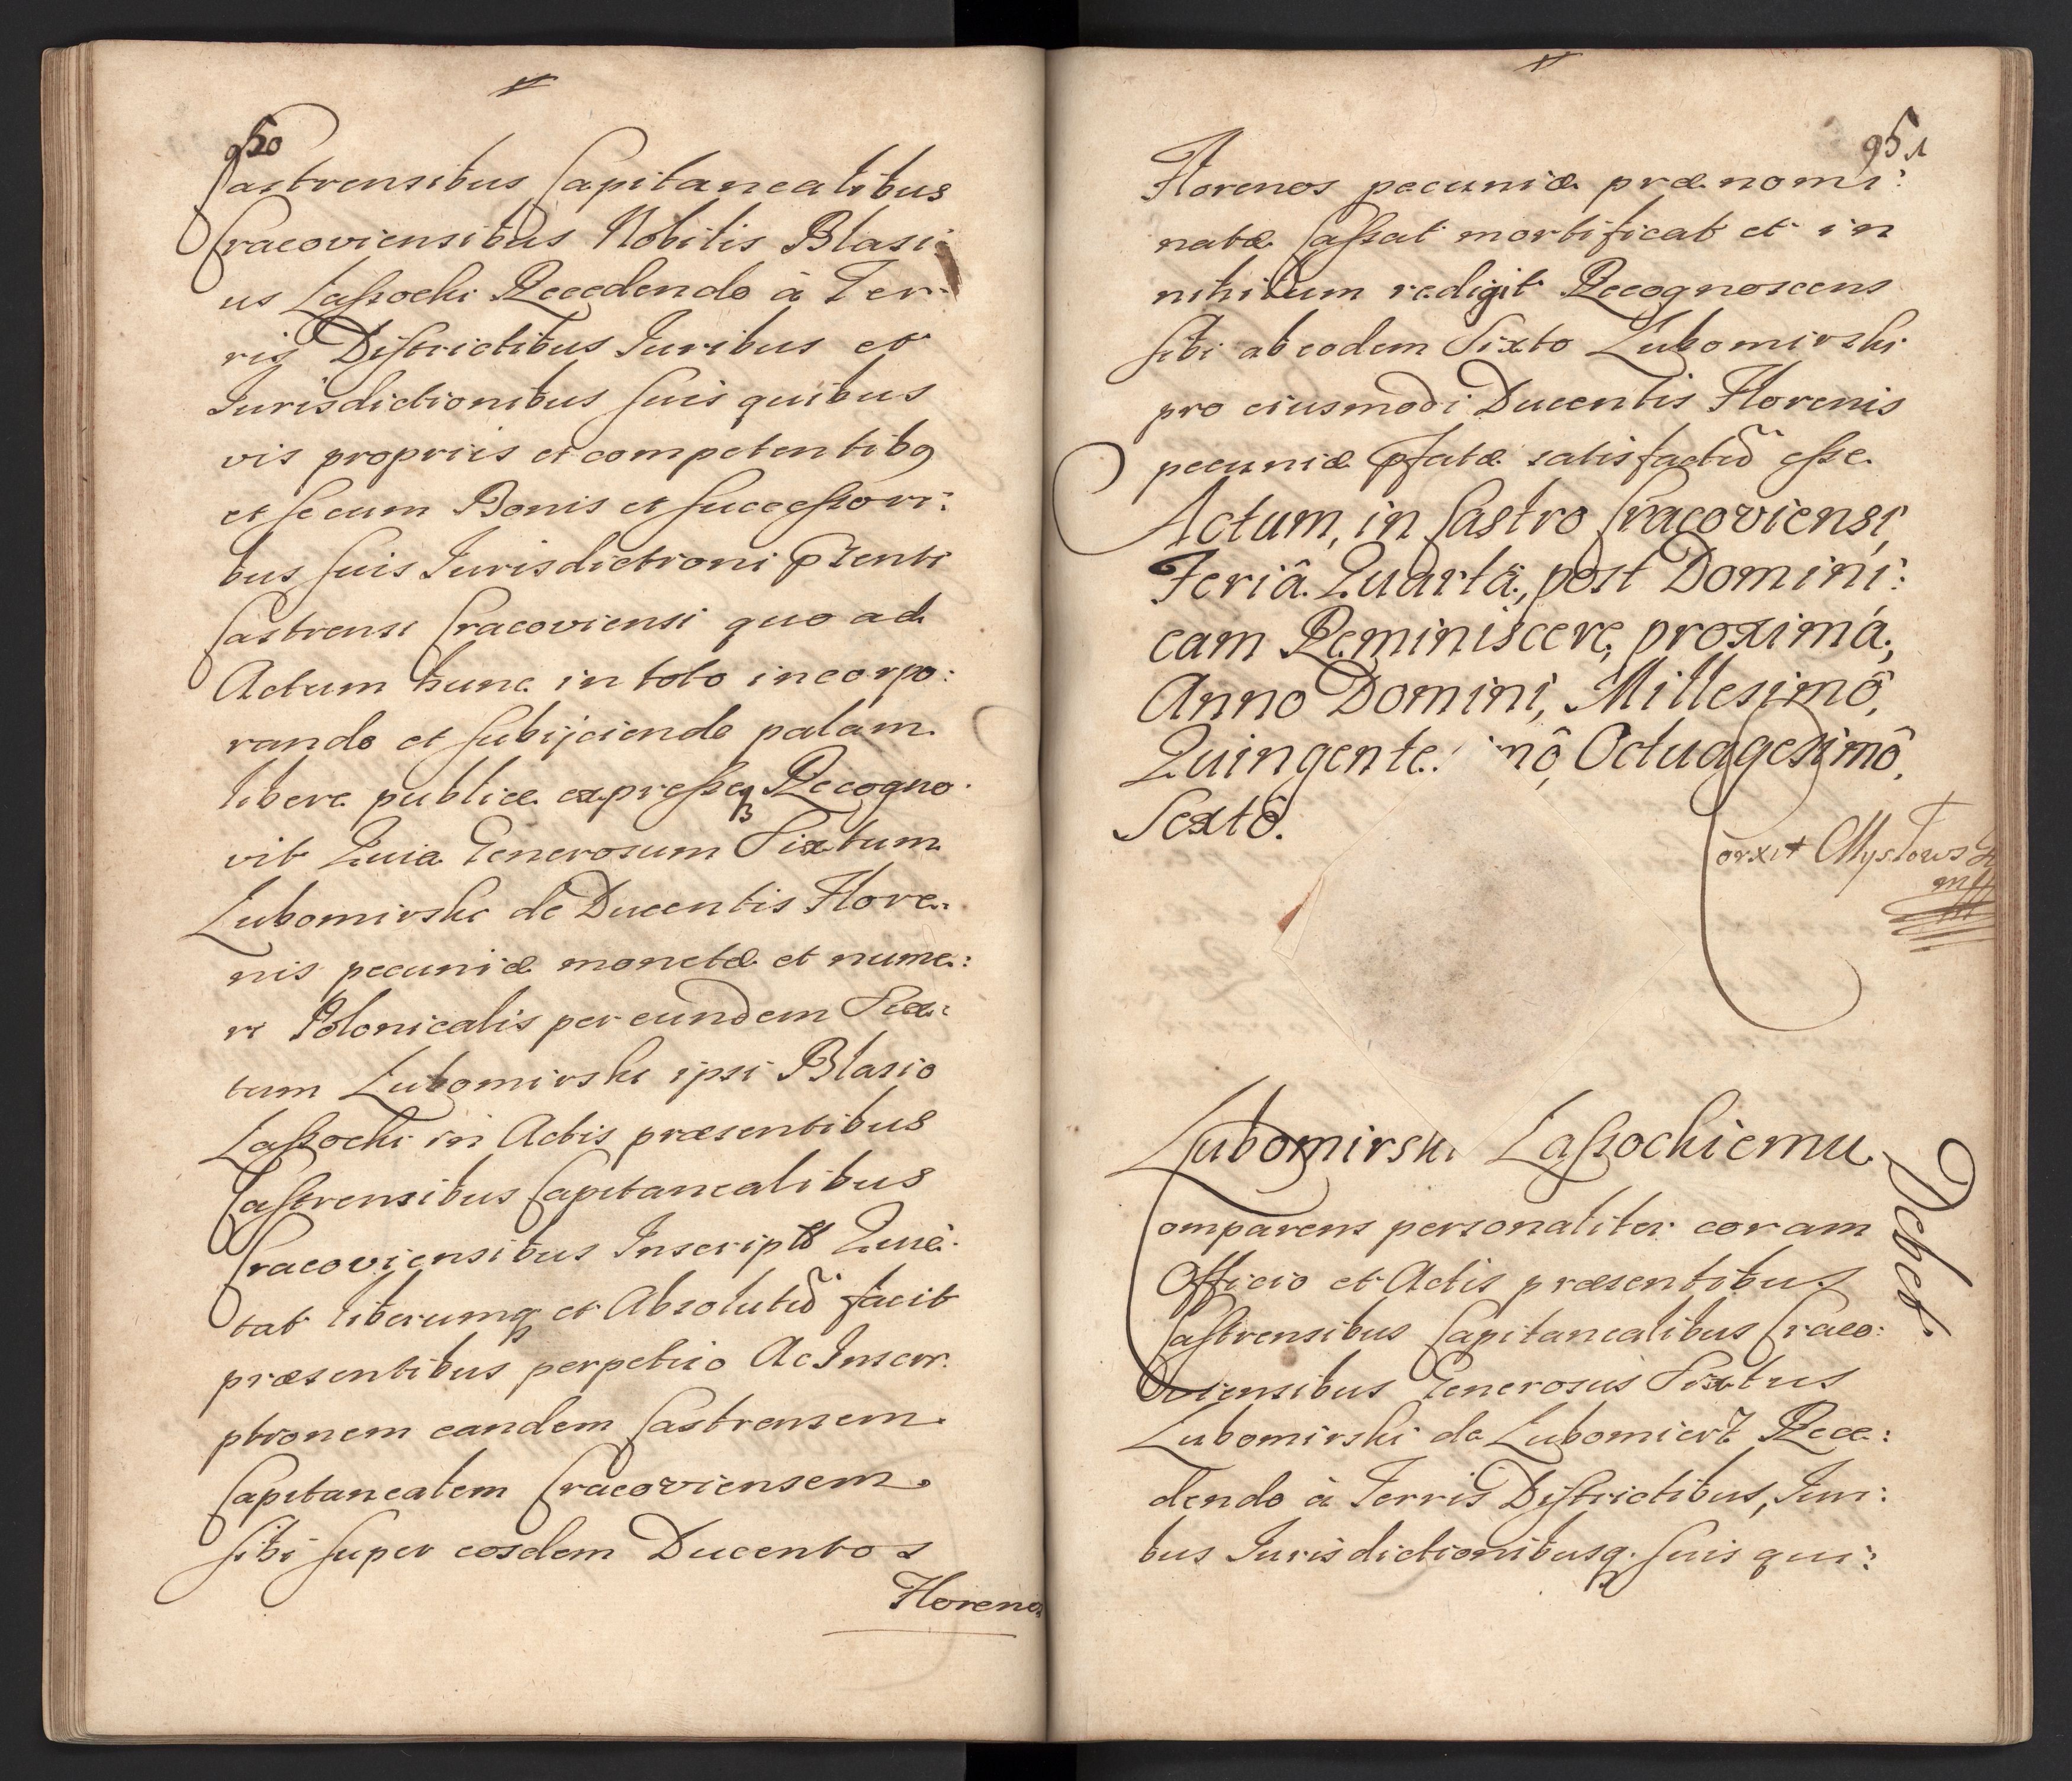 950
Castrensibus Capitanealibus
Cracoviensibus Nobilis Blasi:
us Lassocki Recedendo à Ter:
ris Districtibus Iuribus et
Iurisdictionibus suis quibus
vis propriis et competentibq
et se cum Bonis et successori:
bus suis Iurisdictioni pnti
Castrensi Cracoviensi quo ad
Actum hunc in toto incorpo:
rando et subijciendo palam
libere publice expresseq Recogno:
vit Quia Generosum Sixtum
Lubomirski de Ducentis Flore:
nis pecuniæ monetæ et nume:
ri Polonicalis per eundem Six:
tum Lubomirski ipsi Blasio
Lassocki in Actis præsentibus
Castrensibus Capitanealibus
Cracoviensibus Inscriptis Quie:
tat liberumq et Absolutũ facit
præsentibus perpetuo Ac Inscri:
ptionem eandem Castrensem
Capitanealem Cracoviensem
sibi super eosdem Ducentos
Florenos
951
Florenos pecuniæ prænomi:
natæ Cassat mortificat et in
nihilum redigit Recognoscens
sibi ab eodem Sixto Lubomirski
pro eiusmodi Ducentis Florenis
pecuniæ pfatæ satisfactũ esse
Actum, in Castro Cracoviensi,
Feriâ Quartâ, post Domini:
cam Reminiscere, proximâ,
Anno Domini, Millesimô,
Quingente mô, Octuagesimô,
Sextô.
Corxit Mystows
mp
Lubomirski Lassockiemu
Debet
Comparens personaliter coram
Officio et Actis præsentibus
Castrensibus Capitanealibus Craco:
viensibus Generosus Sixtus
Lubomirski de Lubomierz Rece:
dendo à Terris Districtibus, Iuri:
bus Iurisdictionibusq. suis qui: